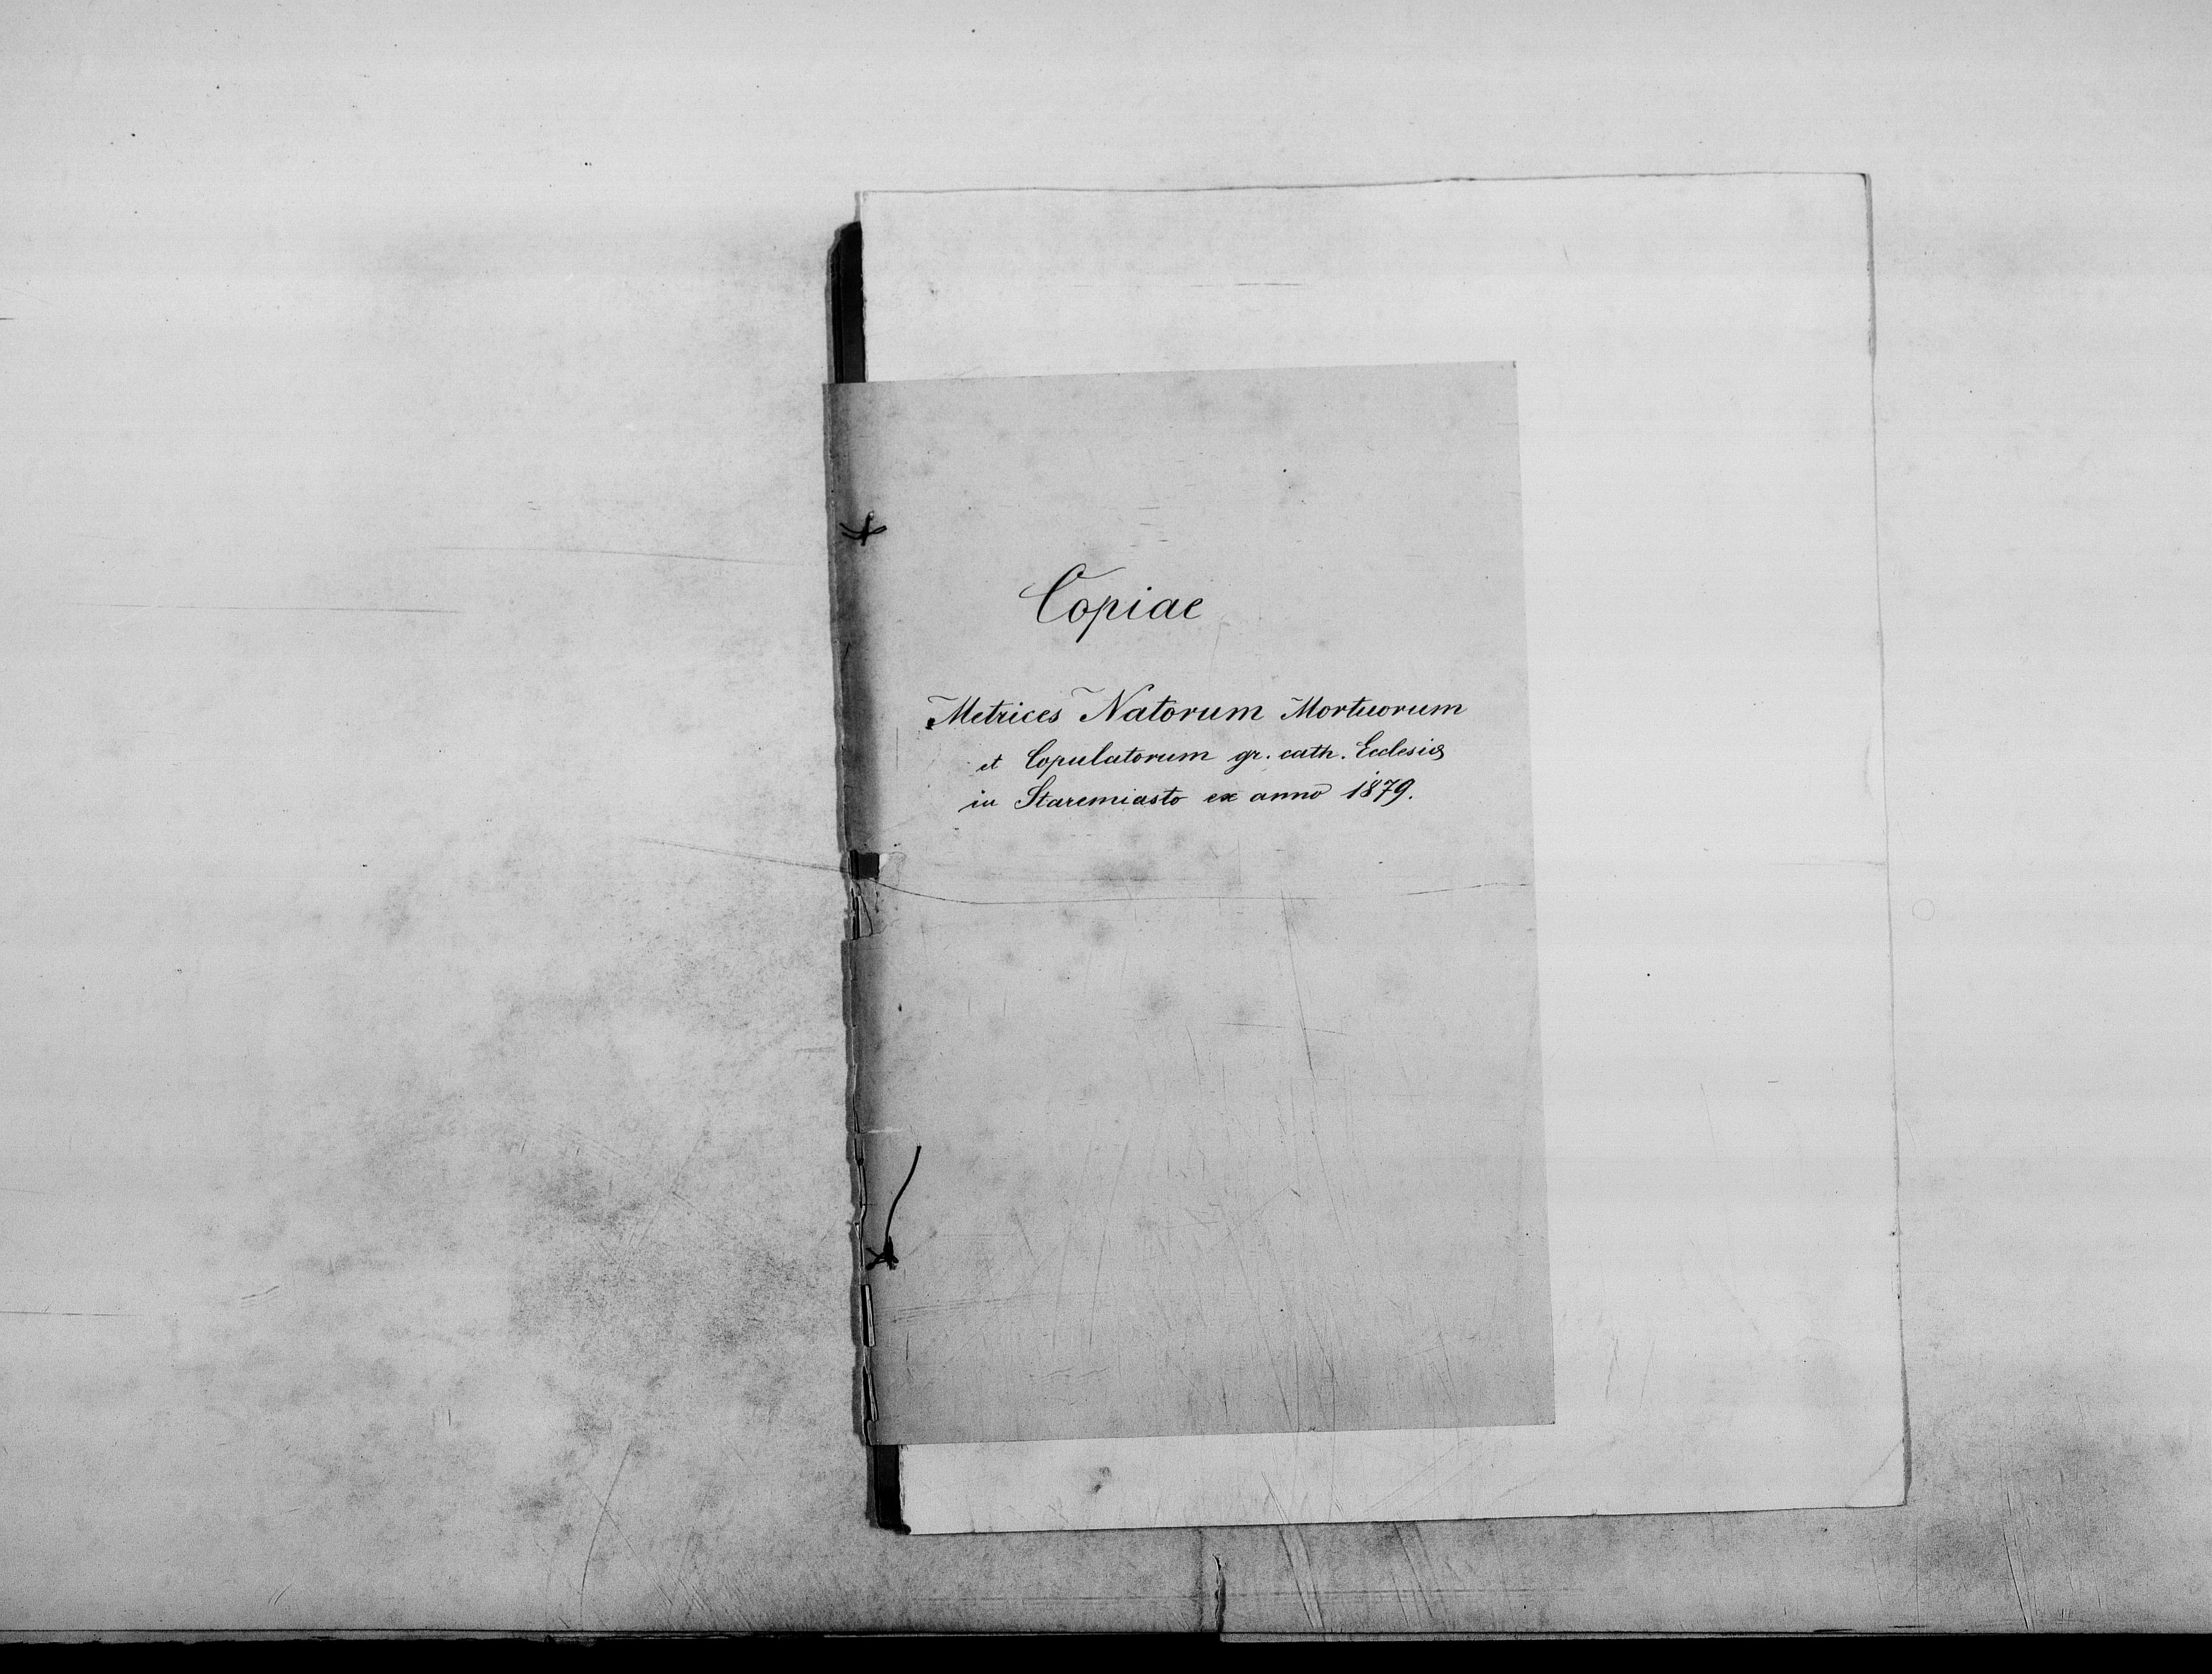 Copiae
Metrices Natorum Mortuorum
et Copulatorum gr. cath. Ecclesiæ
in Staremiasto ex anno 1879.